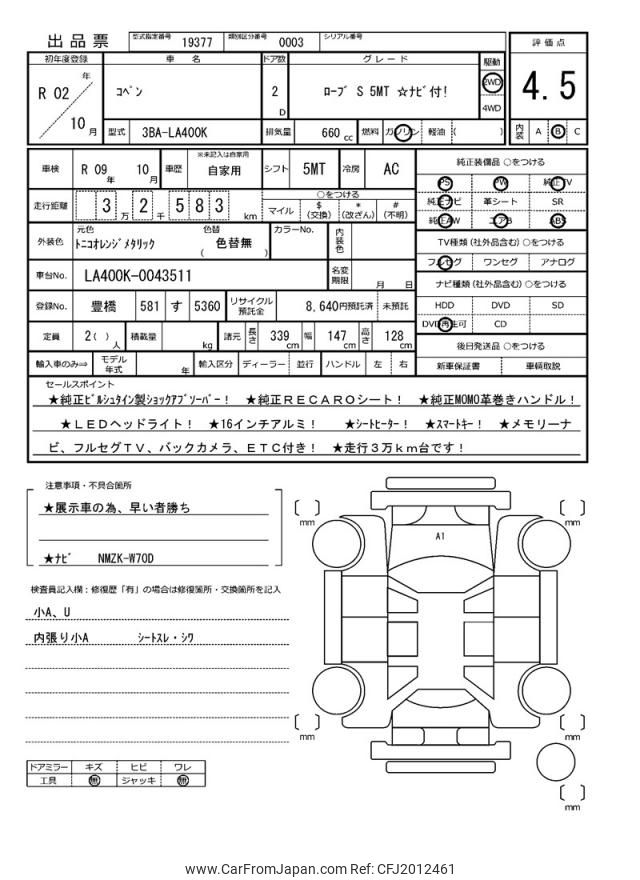 出品票 型式指定番号 19377 類別区分番号 0003 シリアル番号
初年度登録 車名 ドア数 グレード 駆動 評価点
R 02 年 10 月 コペン 2 D ローブ S 5MT ☆ナビ付! 2WD 4WD 4.5
型式 3BA-LA400K 排気量 660 cc 燃料 ガソリン 軽油 ( ) 内装 A B C
車検 R 09 年 10 月 車歴 ※未記入は自家用 自家用 シフト 5MT 冷房 AC 純正装備品 ○をつける
PS PW 純正TV
走行距離 3 万 2 千 5 8 3 km ○をつける マイル $ (交換) * (改ざん) # (不明) 純正ナビ 革シート SR
純正AW エアB ABS
外装色 元色 トニコオレンジメタリック 色替 ( 色替無 ) カラーNo. 内装色 TV種類 (社外品含む) ○をつける
フルセグ ワンセグ アナログ
車台No. LA400K-0043511 名変期限 月 日 ナビ種類 (社外品含む) ○をつける
登録No. 豊橋 581 す 5360 リサイクル預託金 8,640円預託済 未預託 HDD DVD SD
DVD再生可 CD
定員 2( ) 人 積載量 kg 諸元 長さ 339 cm 幅 147 cm 高さ 128 cm 後日発送品 ○をつける
輸入車のみ⇒ モデル年式 年 輸入区分 ディーラー 並行 ハンドル 左 右 新車保証書 車輌取説
セールスポイント
★純正ビルシュタイン製ショックアブソーバー! ★純正RECAROシート! ★純正MOMO革巻きハンドル!
★LEDヘッドライト! ★16インチアルミ! ★シートヒーター! ★スマートキー! ★メモリーナ
ビ、フルセグTV、バックカメラ、ETC付き! ★走行3万km台です!
注意事項・不具合箇所
★展示車の為、早い者勝ち
★ナビ NMZK-W70D
検査員記入欄：修復歴「有」の場合は修復箇所・交換箇所を記入
小A、U
内張り小A シートスレ・シワ
ドアミラー キズ ヒビ ワレ
工具 無 ジャッキ 無
mm mm
A1
mm mm
mm
www.CarFromJapan.com Ref: CFJ2012461